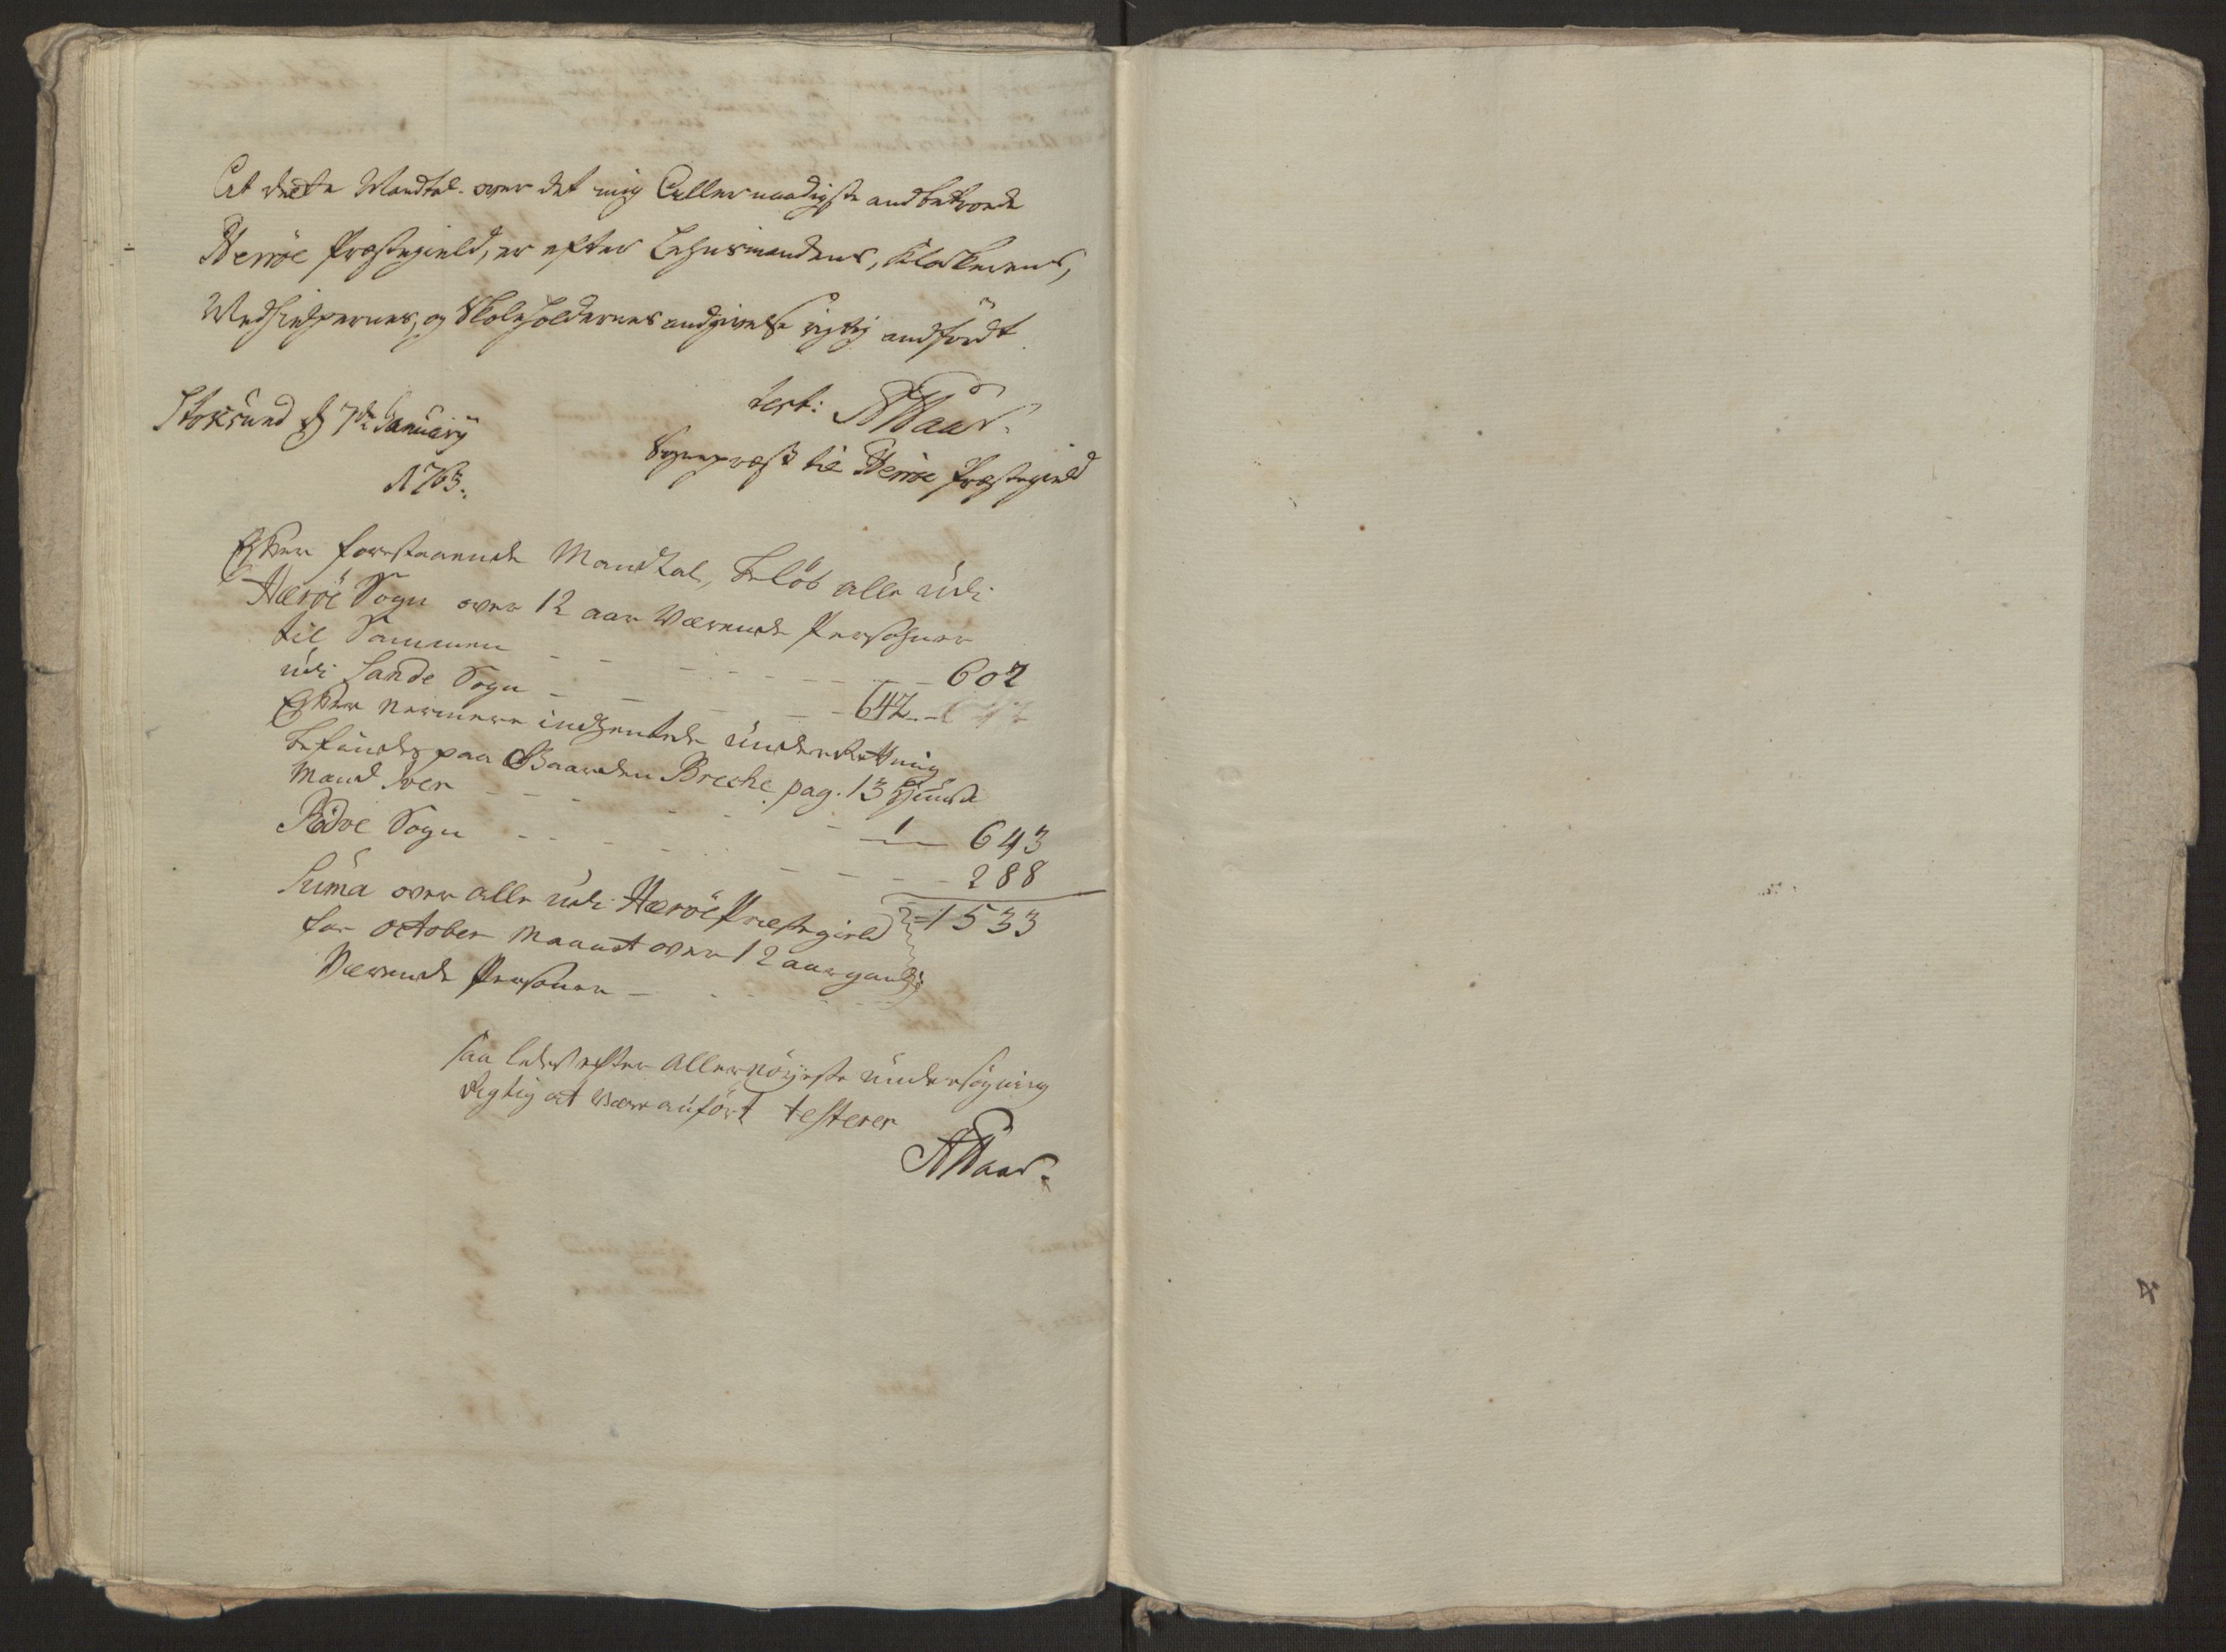 At dette Mandtal over det mig Allernaadigste andbetroede
Herröe Præstegield, er efter Lehnsmandens, Klokkerens,
Medhielpernes, og Skoleholdernes andgivelse rigtig andfördt
Stoksund d 7de Januarij
1763.
test: A Waas.
Sognepræst til Herröe Præstegield
Efter forestaaende Mandtal, beløb alle udi
Herröe Sogn over 12 aar Værende Persohner
til Sammen - - - - 602
udi Sande Sogn - - - - 642
Efter nermere indhentede underrettning
befindes paa Gaarden Breche pag. 13
Mand Iver - - - - 1 - 643
Rödve Sogn - - - - 288
Suma over alle udi Herröe Præstegield 1533
for October Maanet over 12 aar gamle
Værende Personer - - -
saa ledes efter Allernöyeste undersögning
Rigtig at være anfört testerer
A Waas.
4